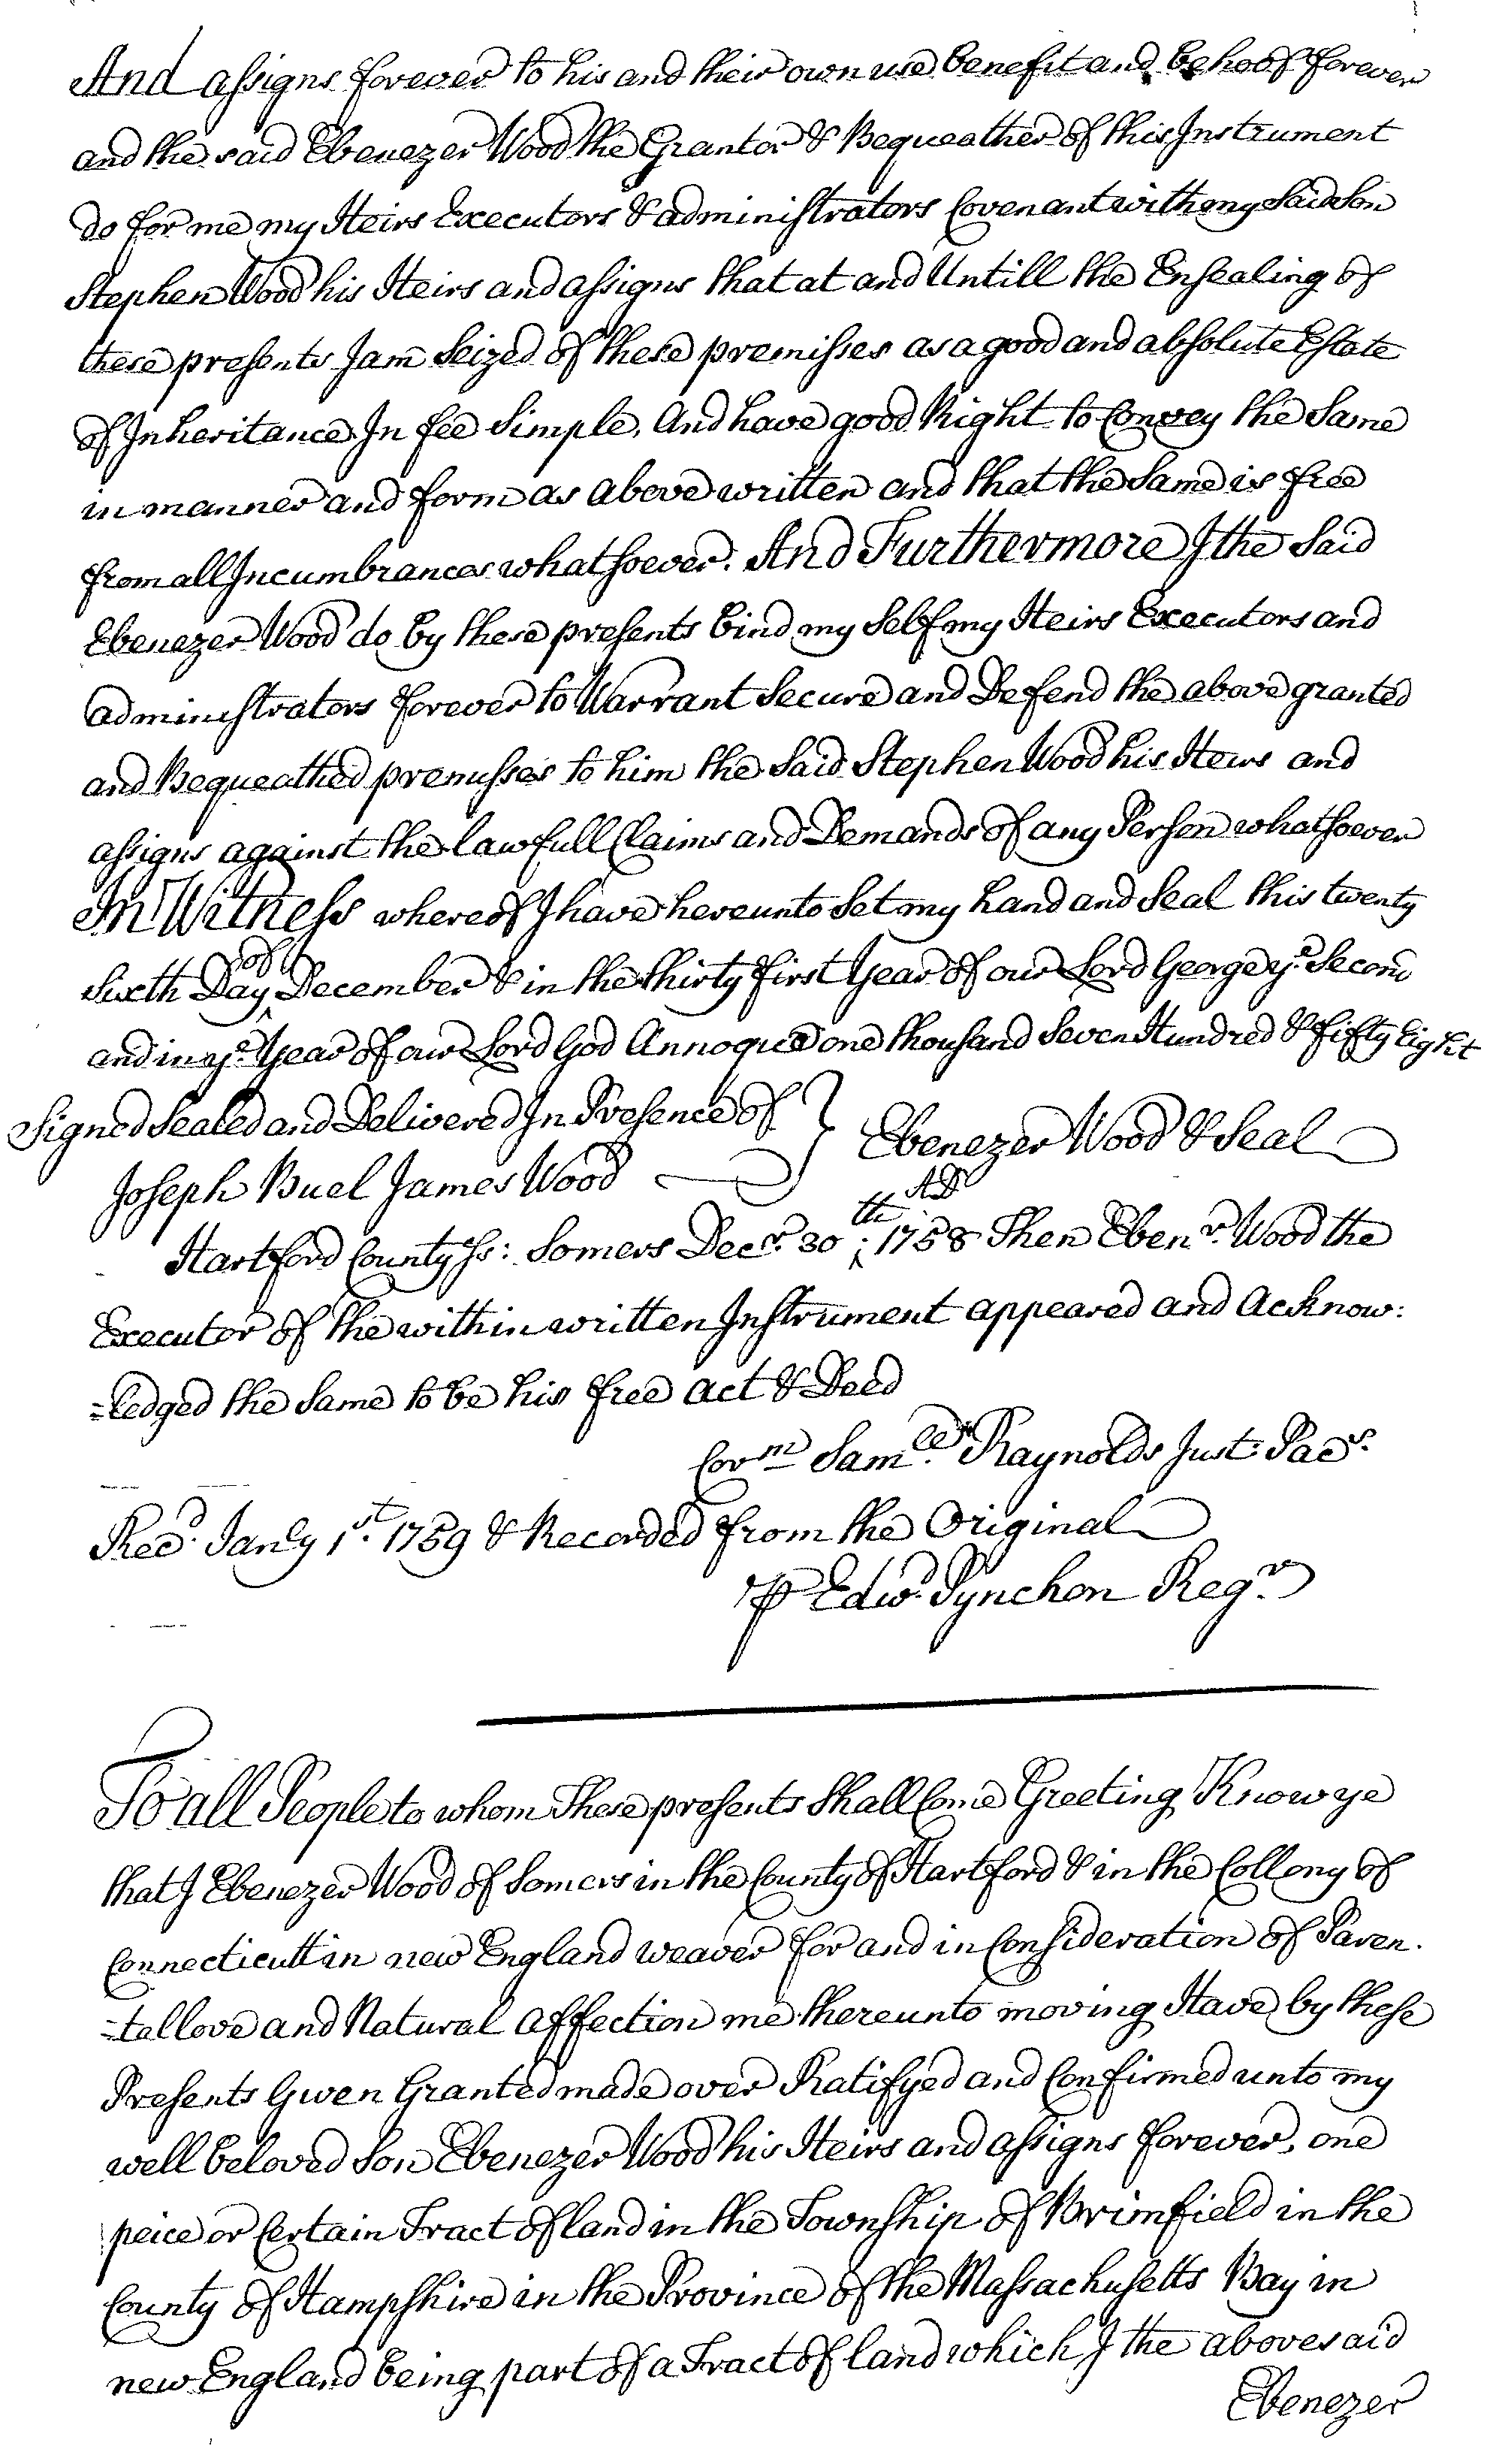 And assigns forever to his and their own use benefit and behoof forever
and the said Ebenezer Wood the Grantor & Bequeather of this Instrument
do for me my Heirs Executors & administrators Covenant with my Said Son
Stephen Wood his Heirs and assigns that at and Untill the Ensealing of
these presents I am Seized of these premisses as a good and absolute Estate
of Inheritance In fee Simple, And have good Right to Convey the Same
in manner and form as above written and that the Same is free
from all Incumbrances whatsoever. And Furthermore I the Said
Ebenezer Wood do by these presents bind my Self my Heirs Executors and
administrators forever to Warrant Secure and Defend the above granted
and Bequeathed premisses to him the Said Stephen Wood his Heirs and
assigns against the lawfull Claims and Demands of any Person whatsoever
In Witness whereof I have hereunto Set my hand and Seal this twenty
Sixth Day of December & in the thirty first Year of our Lord George ye. Second
and in ye. Year of our Lord God Annoque one thousand Seven Hundred & fifty Eight
Signed Sealed and Delivered In Presence of } Ebenezer Wood & Seal
Joseph Buel James Wood
Hartford County ss: Somers Decr. 30th; AD 1758 Then Ebenr. Wood the
Executor of the within written Instrument appeared and Acknow:
=ledged the Same to be his free act & Deed
Corm Samll. Raynolds Just: Pacs.
Recd. Janly 1st. 1759 & Recorded from the Original
⅌ Edwd. Pynchon Regr.
To all People to whom These presents Shall Come Greeting Know ye
that I Ebenezer Wood of Somers in the County of Hartford & in the Collony of
Connecticutt in new England weaver for and in Consideration of Paren.
=tal love and Natural affection me thereunto moving Have by these
Presents Given Granted made over Ratifyed and Confirmed unto my
well beloved Son Ebenezer Wood his Heirs and assigns forever, one
peice or Certain Tract of land in the Township of Brimfield in the
County of Hampshire in the Province of the Massachusetts Bay in
new England being part of a Tract of land which I the abovesaid
Ebenezer